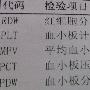 代码 检验项目
RDW 红细胞分
PLT 血小板计
MPV 平均血小
PCT 血小板压
PDW 血小板分